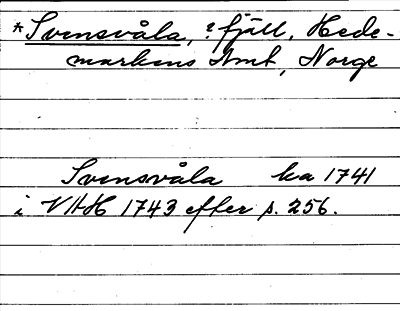 *Svensvåla, ? fjäll, Hede-
markens Amt, Norge
Svensvåla ka 1741
i VHH 1743 efter s. 256.